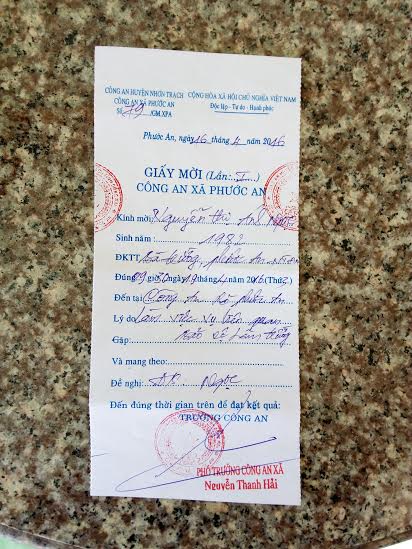 CÔNG AN HUYỆN NHƠN TRẠCH CỘNG HÒA XÃ HỘI CHỦ NGHĨA VIỆT NAM
CÔNG AN XÃ PHƯỚC AN Độc lập - Tự do - Hạnh phúc
Số 79 /GM.XPA
Phước An, ngày 16 tháng 4 năm 2016
GIẤY MỜI (Lần: I )
CÔNG AN XÃ PHƯỚC AN
Kính mời: Nguyễn Thị Ngọc
Sinh năm : 1982
ĐKTT phước An
Đúng 09 giờ 30 ngày 19 tháng 4 năm 2016 (Thứ )
Đến tại Công An xã phước An
Lý do Làm việc vụ liên quan
Gặp:
Và mang theo:
Đề nghị: Ngọc
Đến đúng thời gian trên để đạt kết quả:
TRƯỞNG CÔNG AN
PHÓ TRƯỞNG CÔNG AN XÃ
Nguyễn Thanh Hải